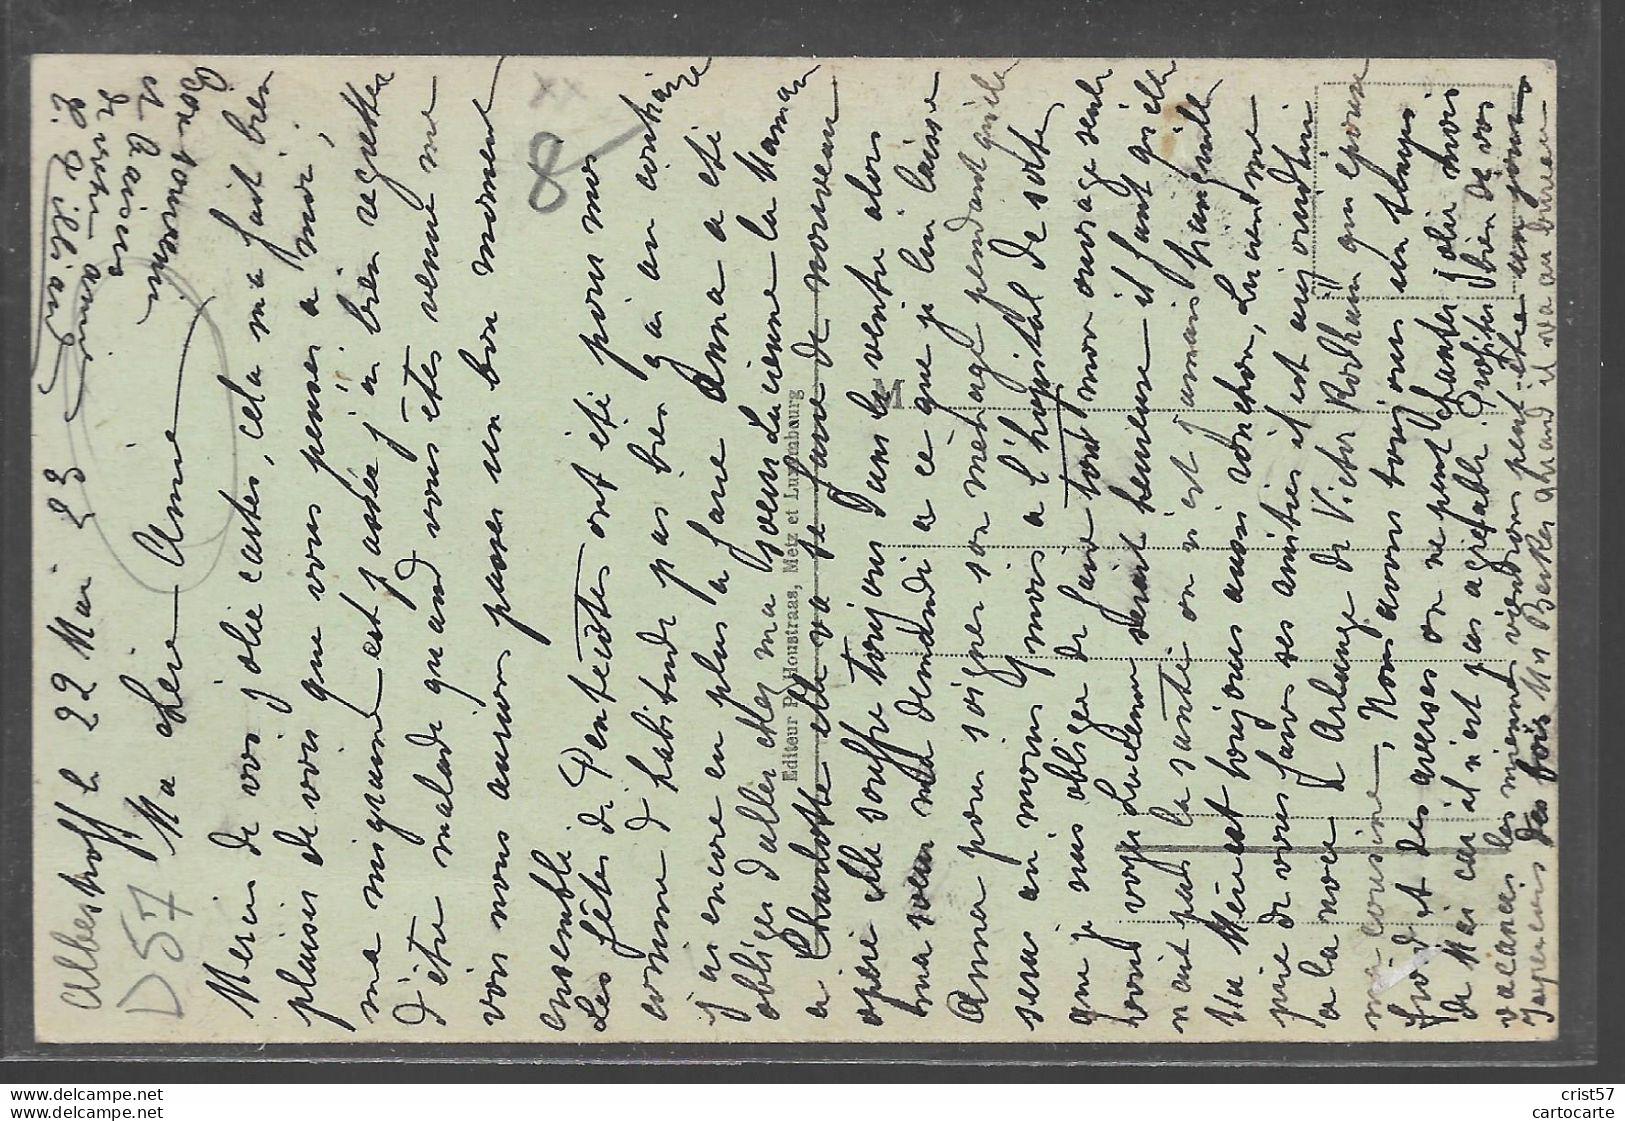 Albestroff le 22 Mai 23
Ma chère Aimé
Merci de vos jolie cartes, cela m'a fait bien
plaisir de voir que vous pensez a moi,
ma migraine est passée j'ai bien regretter
d'être malade quand vous êtes venue me
voir nous aurions passer un bon moment
ensemble.
Les fêtes de Pentecôtes ont été pour moi
comme d'habitude pas bien gai au contraire
j'ai encore en plus a faire Anna a été
obliger d'aller chez ma soeur Lucienne la Maman
a Charlotte elle va se faire de nouveau
opérer elle souffre toujours dans le ventre alors
ma soeur m'a demandé a ce que je lui laisse
Anna pour soigner son ménage pendant qu'elle
seras au moins 3 mois a l'hopital de sorte
que je suis obliger de faire tout mon ouvrage seule
vous voyez Lucienne serait heureuse il faut qu'elle
n'ait pas la santé on n'est jamais tranquille
La Mère est toujours aussi ronchon, Lucien me
prie de vous faires ses amitiés il est aujourdhui
a la noce d'Arlange de Victor Rodhain qui épouse
ma cousine, Nous avons toujours un temps
froid et des averses on ne peut chanter jolie mois
de Mai car il n'est pas agréable. Profitez bien de vos
vacances les mienne viendron peut être un jour
des fois Mr Becker quand il va au bureau
Bon souvenir
et baisers
de votre amie
Editeur P. Houstraas, Metz et Luxembourg
M
D57
8
xx
crist57
cartocarte
www.delcampe.net
www.delcampe.net